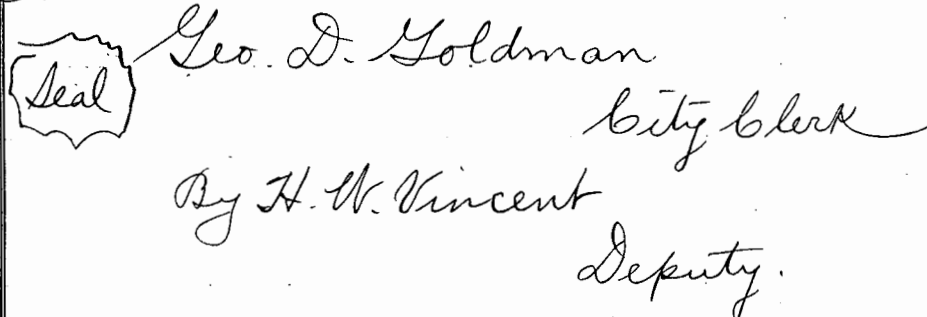 Seal
Geo. D. Goldman
City Clerk
By H. W. Vincent
Deputy.